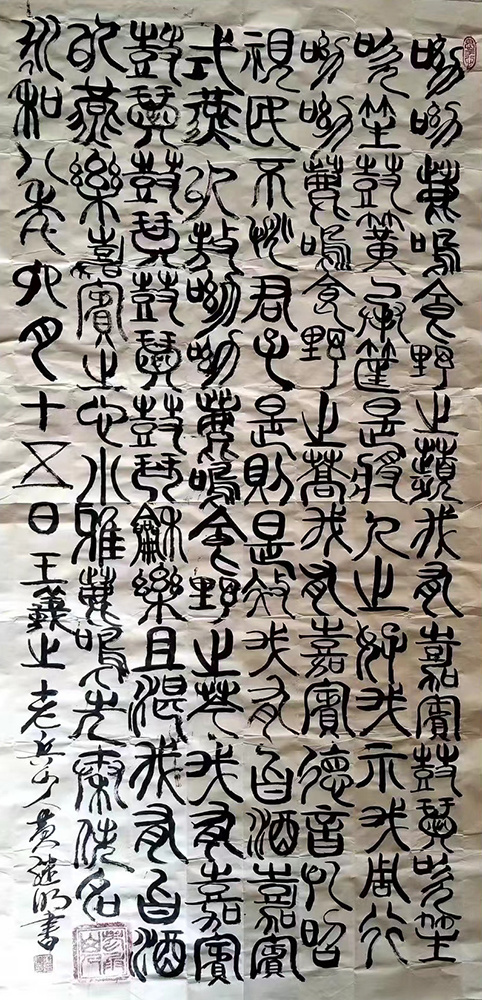 呦呦鹿鳴食野之蘋我有嘉賓鼓瑟吹笙
吹笙鼓簧承筐是將人之好我示我周行
呦呦鹿鳴食野之蒿我有嘉賓德音孔昭
視民不恌君子是則是效我有旨酒嘉賓
式燕以敖呦呦鹿鳴食野之芩我有嘉賓
鼓瑟鼓琴鼓瑟鼓琴龢樂且湛我有旨酒
以燕樂嘉賓之心小雅鹿鳴先秦佚名
永和八年月十五日王羲之老兵山人黄继明書